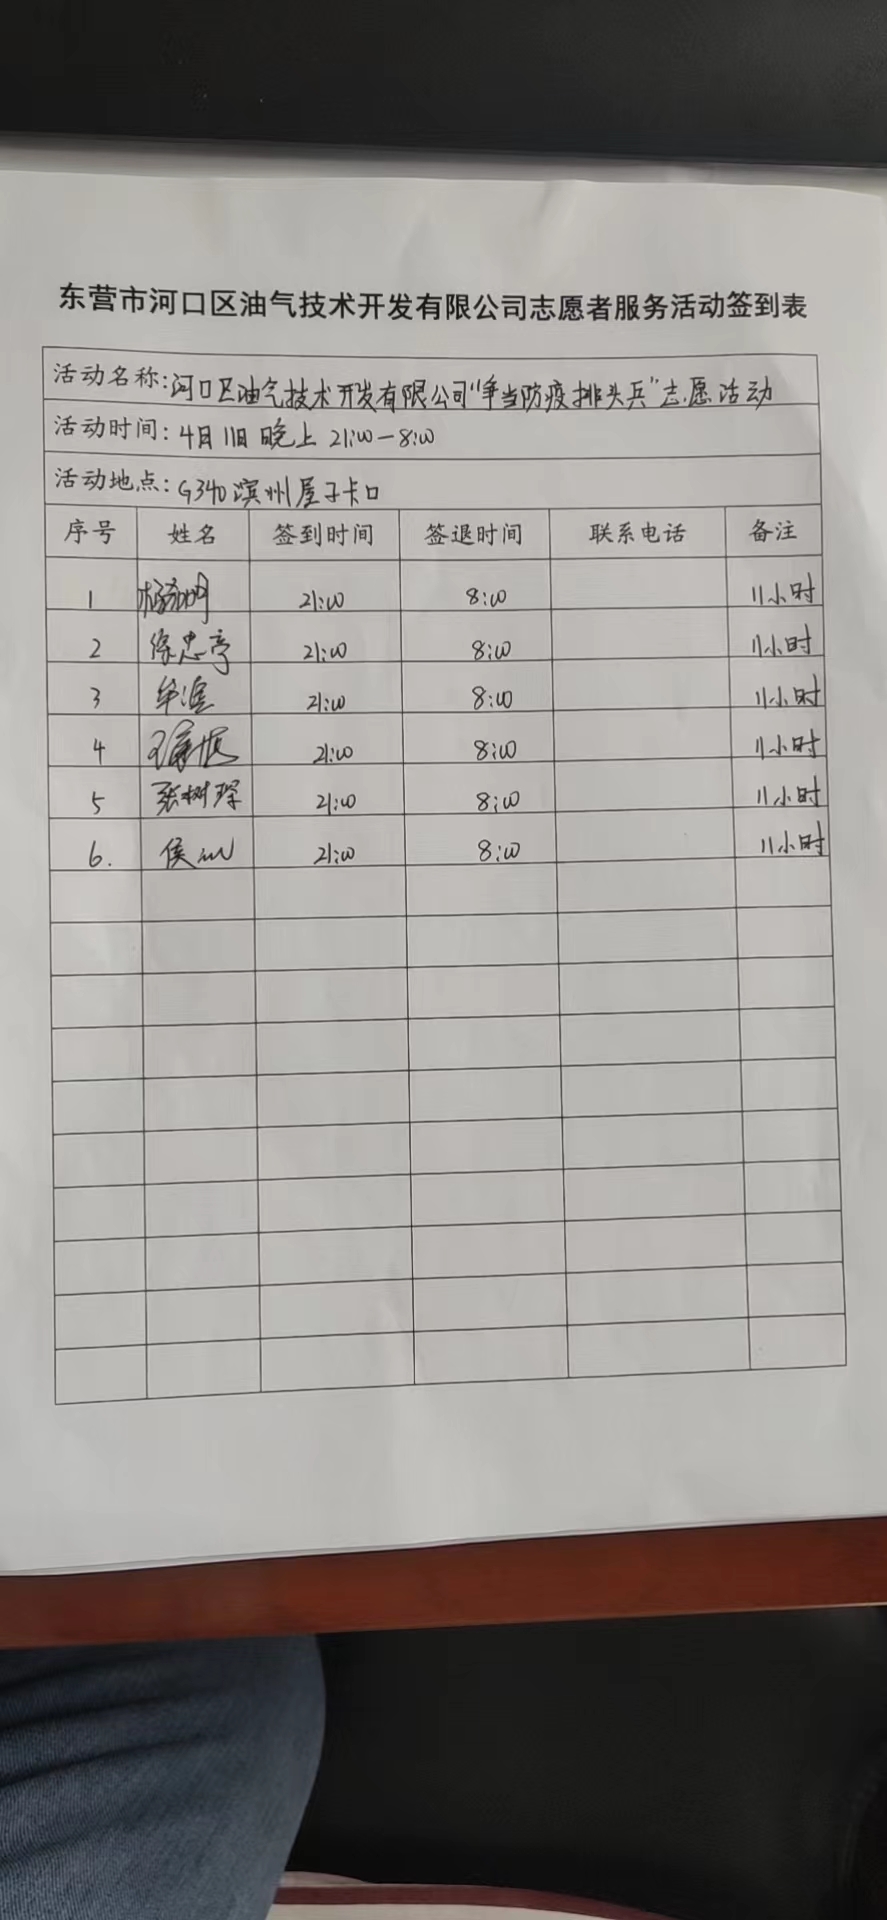 东营市河口区油气技术开发有限公司志愿者服务活动签到表
活动名称:河口区油气技术开发有限公司“争当防疫排头兵”志愿活动
活动时间: 4月11日 晚上 21:00-8:00
活动地点: G340滨州屋子卡口
序号 姓名 签到时间 签退时间 联系电话 备注
1 21:00 8:00 11小时
2 徐忠亭 21:00 8:00 11小时
3 21:00 8:00 11小时
4 21:00 8:00 11小时
5 张树琛 21:00 8:00 11小时
6. 侯 21:00 8:00 11小时